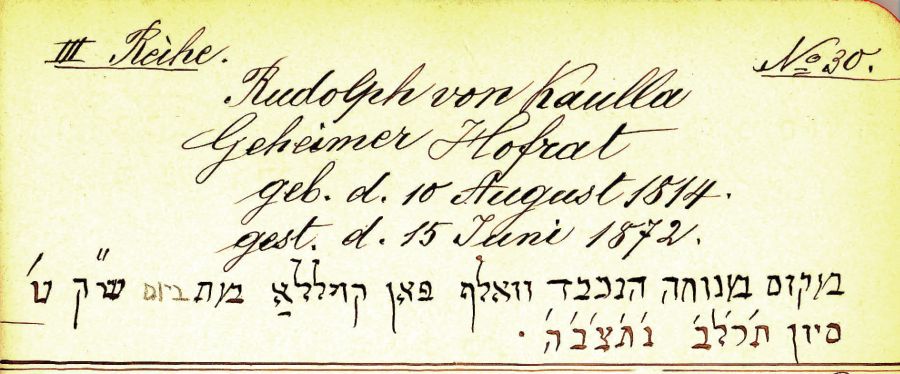 III Reihe. No 30.
Rudolph von Kaulla
Geheimer Hofrat
geb. d. 10 August 1814.
gest. d. 15 Juni 1872.
במקום מנוחה הנכבד וואלף פאן קוללא מת ביום ש"ק ט'
סיון ת'ר'ל'ב' נ'ת'צ'ב'ה'.